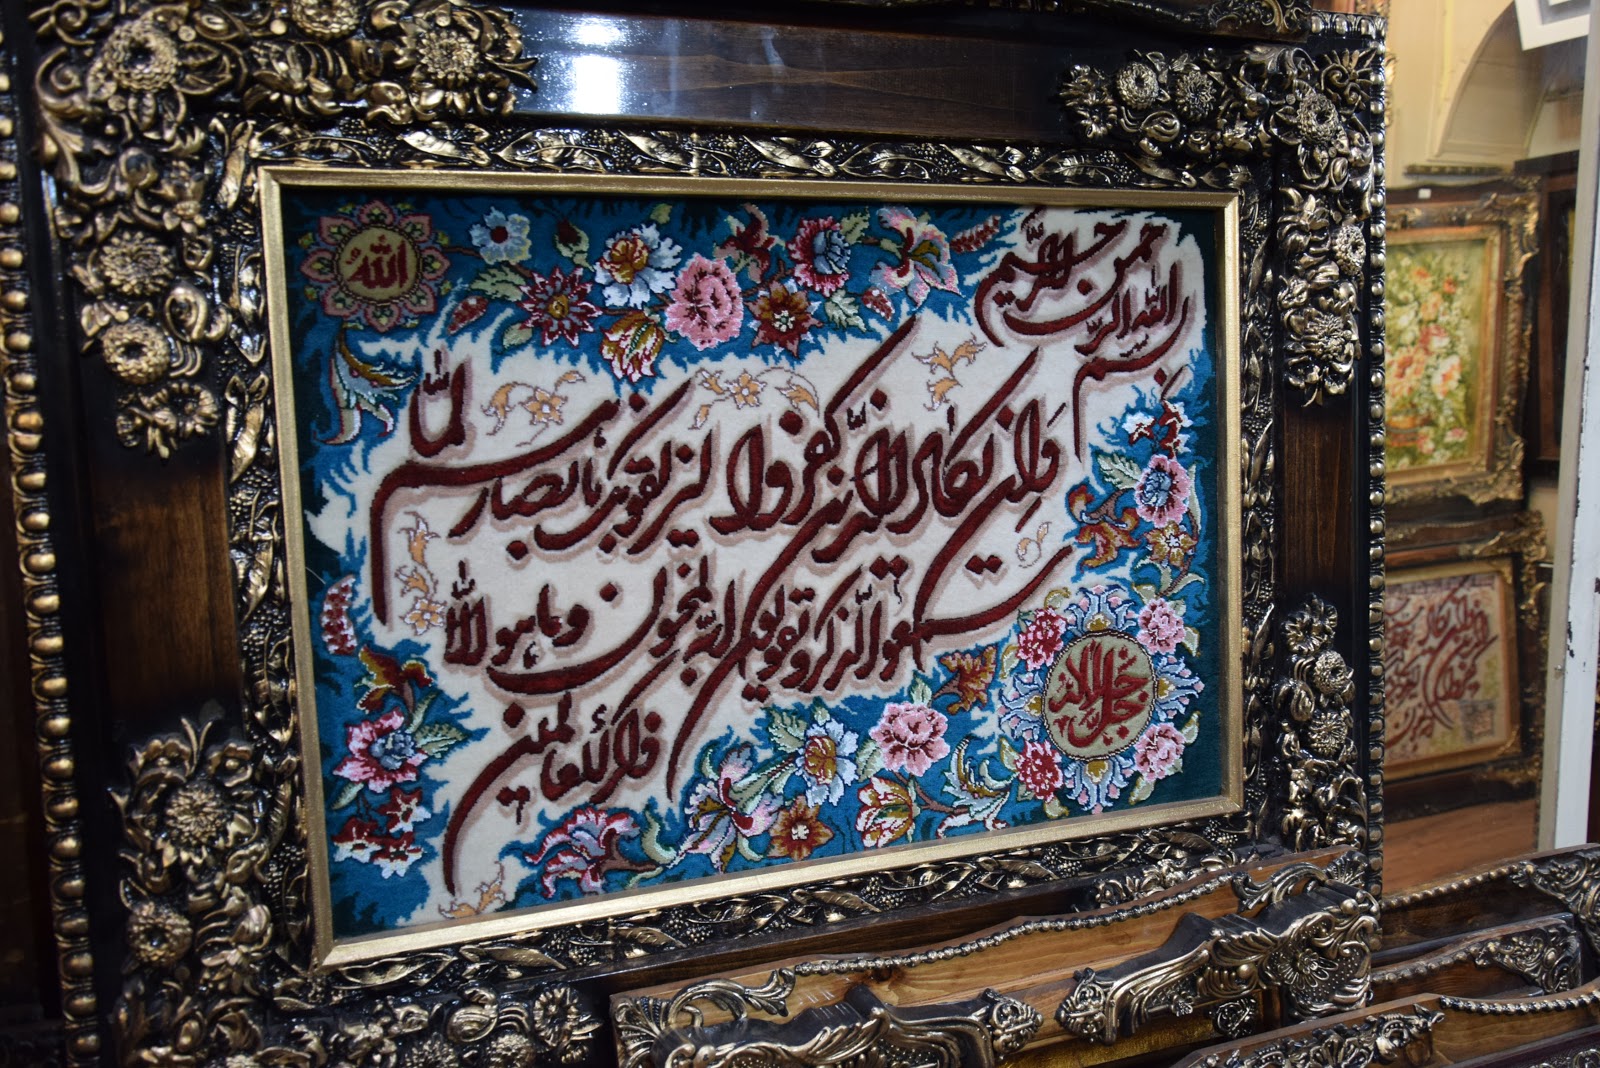 بسم الله الرحمن الرحیم
وَاِن یکاد الذین کفروا لیزلقونک بابصارهم لما
سمعوا الذکر و یقولون انه لمجنون و ما هو الا
ذکر للعالمین
الله
جل جلاله